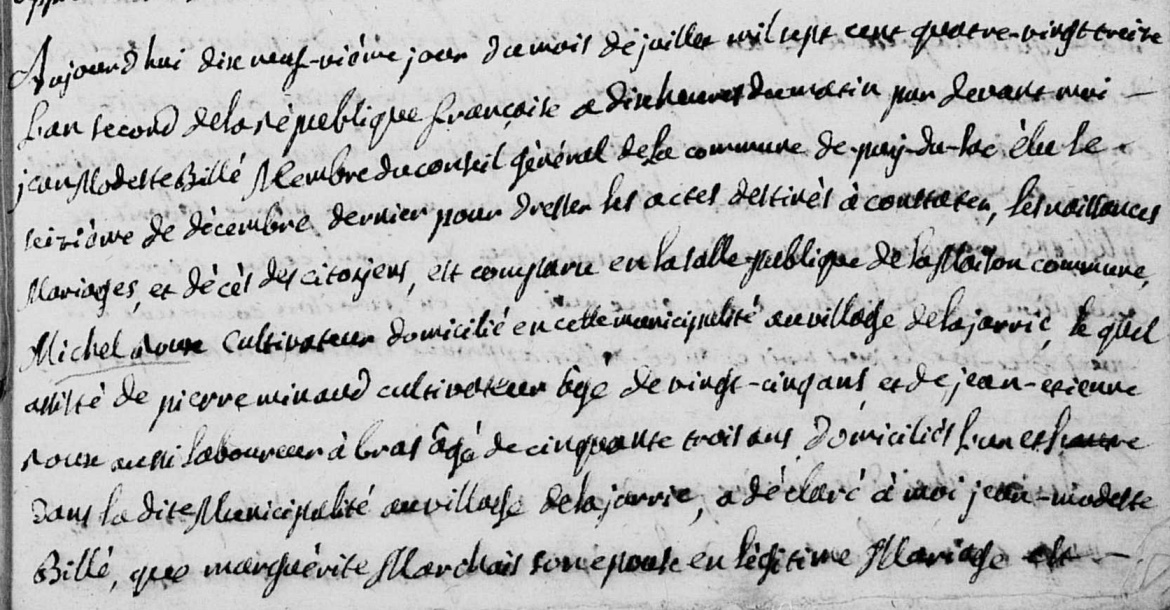 Aujourd'hui dix neuf-vième jour du mois de juillet mil sept cent quatre-vingt treize
l'an second de la république française a dix heures du matin par devant moi —
jean Modeste Billé Membre du conseil général de la commune de puy-du-lac élu le
seizième de décembre dernier pour dresser les actes destinés à constater, les naissances
Mariages, et décès des citoyens, est comparu en la salle publique de la Maison commune,
Michel roux cultivateur domicilié en cette municipalité au village de la jarrie, le quel
assisté de pierre minaud cultivateur âgé de vingt-cinq ans, et de jean-etienne
roux aussi laboureur à bras âgé de cinquante trois ans, domiciliés l'un et l'autre
Dans la dite Municipalité au village de la jarrie, a déclaré à moi jean-modeste
Billé, que marguérite Marchais son epouse en légitime Mariage est —